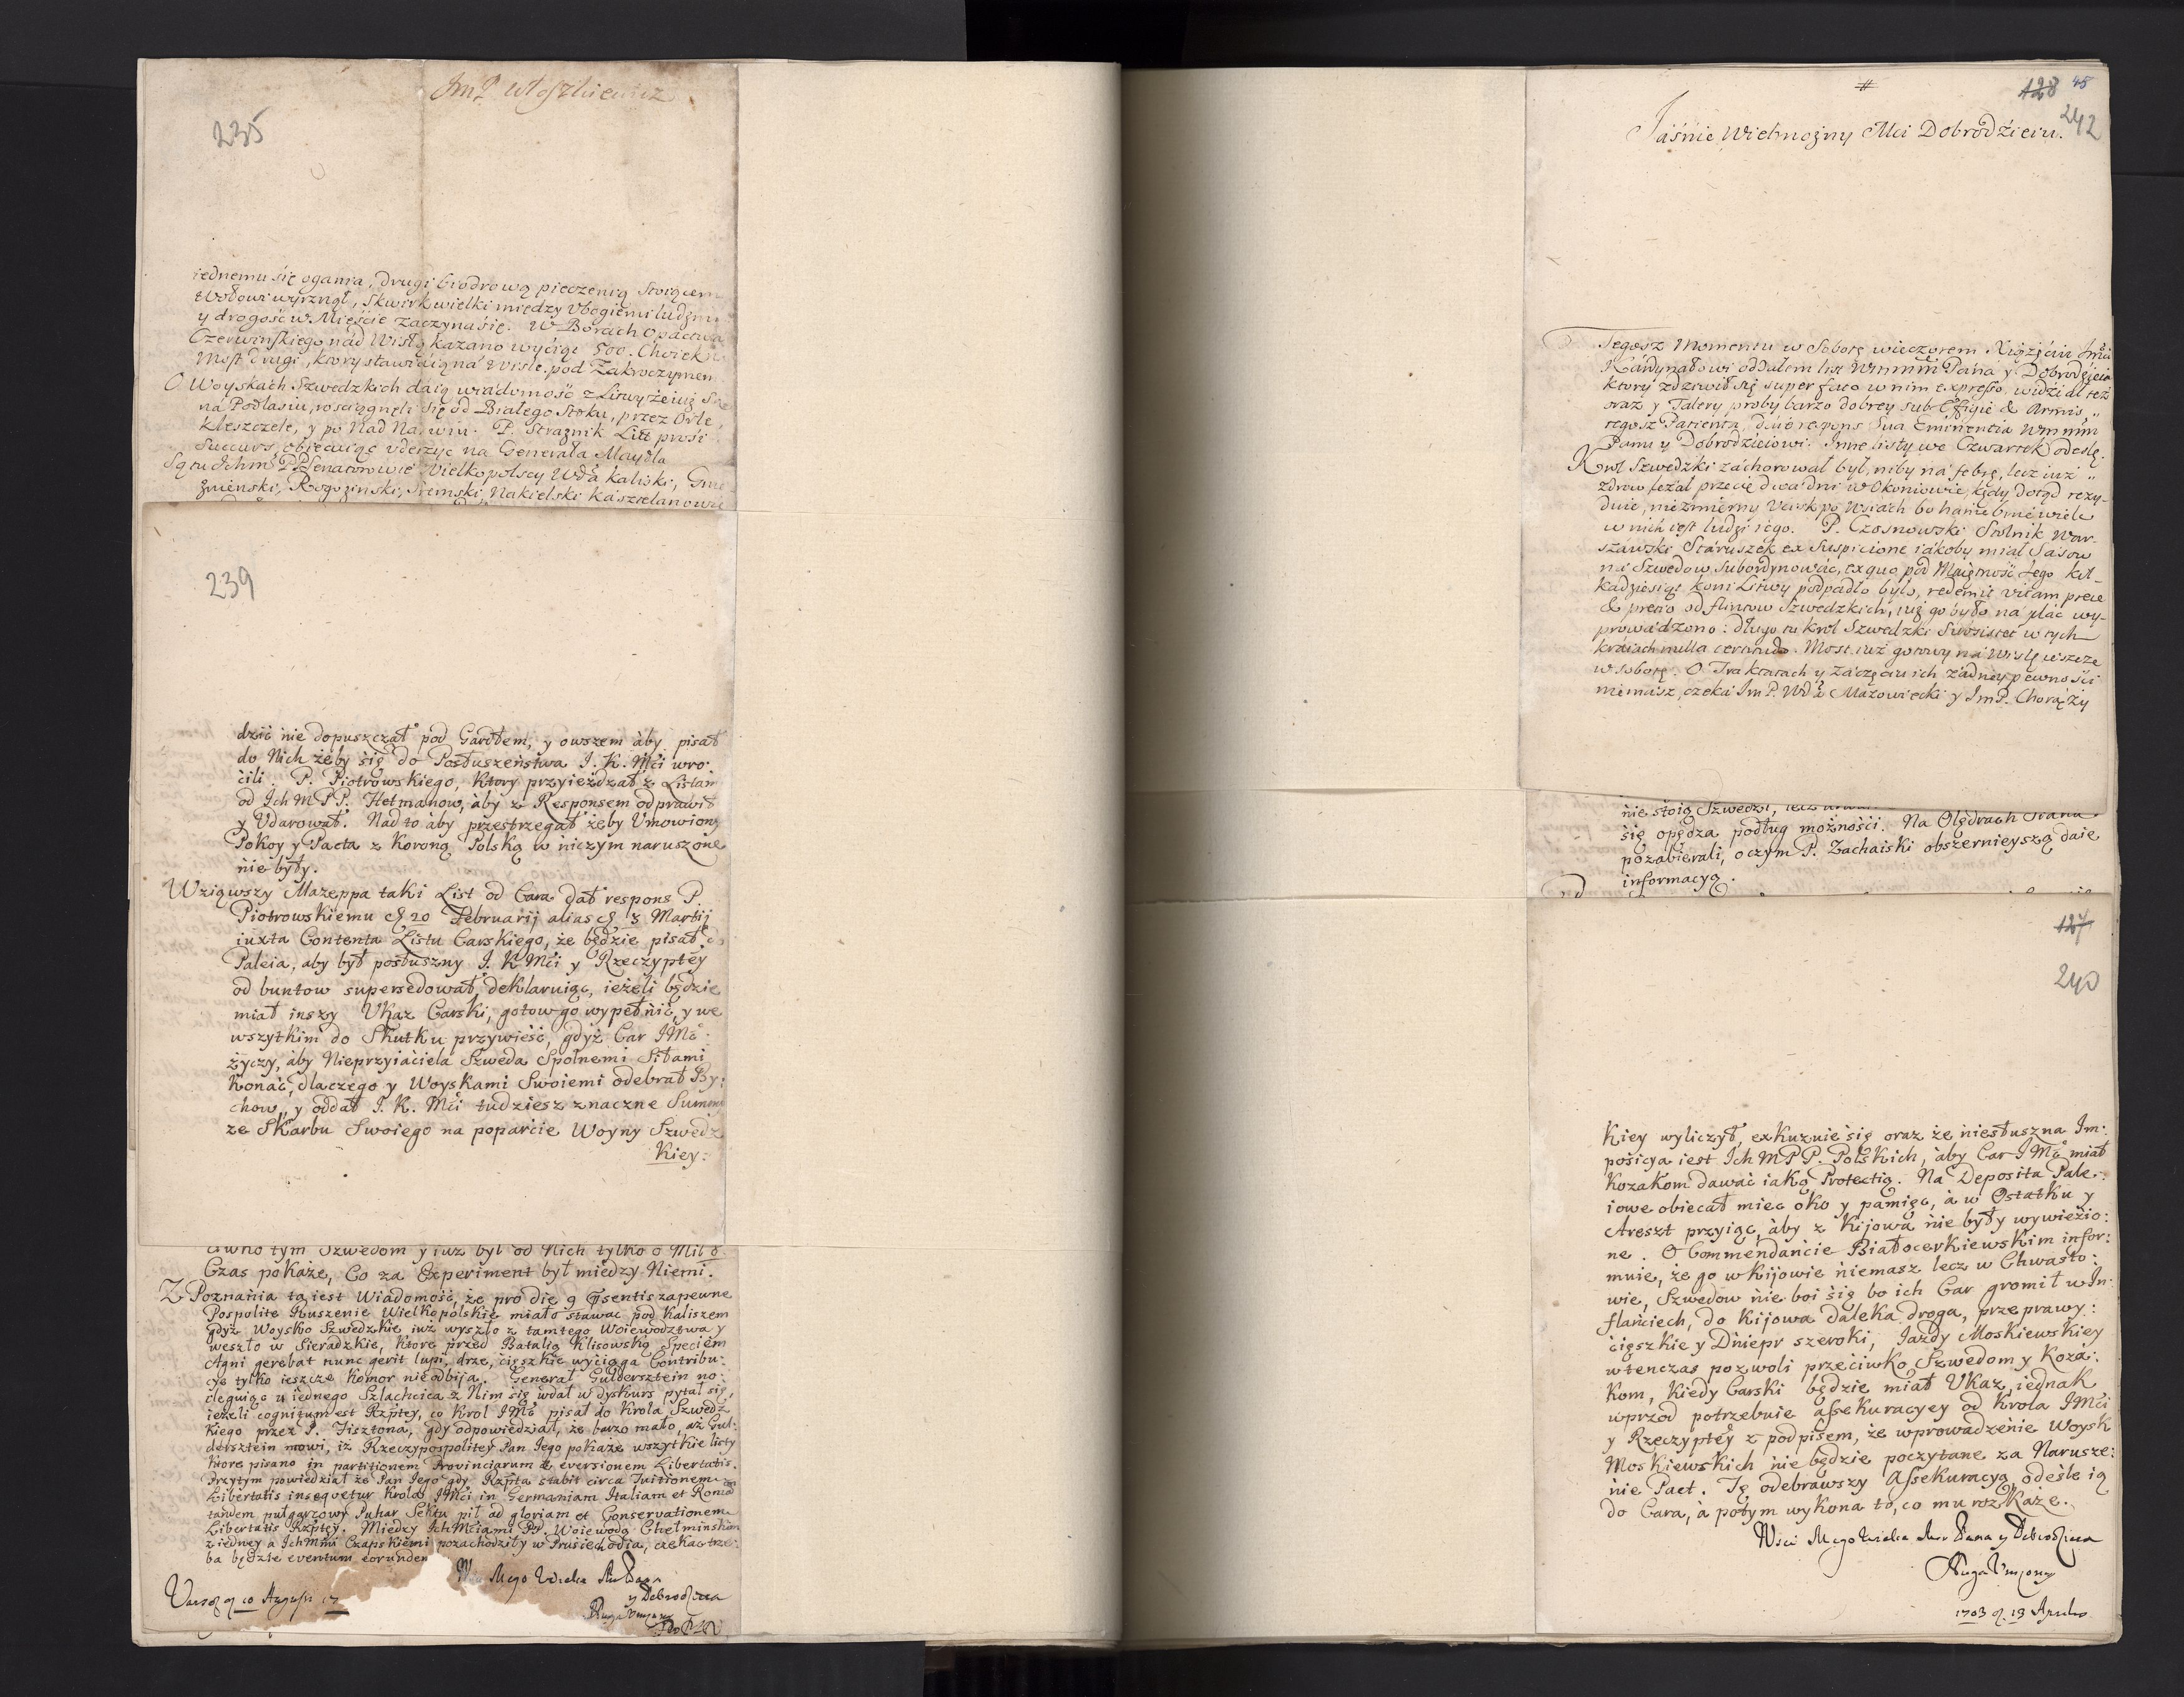 235
iednemu się ogania, drugi biodrową pieczenią stoiącem
Wołowi wyrznął, skwirk wielki między Vbogiemi ludzmi
y drogość w Mieście zaczyna się. W Borach Opactwa
Czerwinskiego nad Wisłą kazano wyciąć 500. Choiek na
Most drugi, ktory stawiaią na Wiśle pod Zakroczymem
O Woyskach Szwedzkich daią wiadomość z Litwy że iuż są
na Podlasiu, rosciągneli się od Białego Stoku, przez Orle,
Kleszczele, y po Nad Narwiu. P. Strażnik Litt prosi
Succurs, obiecuiąc vderzyc na Generała Maydla
Są tu Ichm PP Senatorowie Wielkopolscy Wda Kaliski, Gnie
znienski, Rogozinski, Sremski, Nakielski Kasztelanowie
239
dzić nie dopuszczał pod Gardłem, y owszem aby pisał
do Nich żeby się do Posłuszeństwa J. K. Mći wro:
ćili. P. Piotrowskiego, Ktory przyieżdzał z Listam
od Ich M PP. Hetmanow, aby z Responsem odprawił
y Vdarował. Nad to aby przestrzegał żeby Vmowiony
Pokoy y Pacta z Koroną Polską w niczym naruszone
nie były.
Wziąwszy Mazeppa taki List od Cara dał respons P.
Piotrowskiemu d 20 Februarij alias d 3 Martij
iuxta Contenta Listu Carskiego, że będzie pisał do
Paleia, aby był posłuszny J. K Mći y Rzeczyptey
od buntow supersedował, deklaruiąc, ieżeli będzie
miał inszy Vkaz Carski, gotow go wypełnić, y we
wszytkim do Skutku przywieść, gdyż Car JMć
życzy, aby Nieprzyiaciela Szweda Społnemi Siłami
Konać, dlaczego y Woyskami Swoiemi odebrał By:
chow, y oddał J. K. Mći tudziesz znaczne Summy
ze Skarbu Swoiego na poparcie Woyny Szwedz
Kiey:
tym Szwedom y iuż był od Nich tylko o Mil 8
Czas pokaże, Co za Experiment był miedzy Niemi.
Z Poznania ta iest Wiadomość, że pro die 9 psentis zapewne
Pospolite Ruszenie Wielkopolskie miało stawać pod Kaliszem
gdyż Woysko Szwedzkie iuż wyszło z tamtego Woiewodztwa y
weszło w Sieradzkie, Ktore przed Batalią Klisowską Speciem
Agni gerebat nunc gerit lupi, drze, cięszkie wyciąga Contribu:
cye tylko ieszcze Komor nie odbija. Generał Guldersztein no:
cleguiąc u iednego Szlachcica z Nim się wdał w dyskurs pytał się,
ieżeli cognitum est Rzptey, co Krol JMć pisał do Krola Szwedz
Kiego przez P. Fisztona, gdy odpowiedział, że barzo mało, aż Gul:
dersztein mowi, iż Rzeczypospolitey Pan Jego pokaże wszytkie listy
Ktore pisano in partitionem Provinciarum & eversionem Libertatis.
Przytym powiedział że Pan Jego gdy Rzpta stabit circa Tuitionem
Libertatis insequetur Krola JMći in Germaniam Italiam et Romã
tandem pułgarcowy Puhar Sektu pił ad gloriam et Conservationem
Libertatis Rzptey. Miedzy Ich Mćiami PP. Woiewodą Chełminskim
z iedney a Ich Mmi Czapskiemi pozachodziły w Prusiech odia, czekać trze:
ba będzie eventum eorundem
y Dobrodzieia
# 128 48
242
Jaśnie Wielmożny Mći Dobrodzieiu.
Tegosz Momentu w Sobotę wieczorem Xiążęciu Jmći
Kardynałowi oddałem list Wmmm Pana y Dobrodzieia
ktory zdziwił się super facto w nim expresso, widział też
oraz y Talery proby barzo dobrey sub Effigie & Armis
tegosz Pacienta, daie respons Sua Eminentia Wmmm
Panu y Dobrodzieiowi. Inne listy we Czwartek odeslę.
Krol Szwedzki zachorował był, niby na febrę, lecz iuż
zdrow leżał przecie dwa dni w Okoniowie, kędy dotąd rezy-
duie, niezmierny Vcisk po Wsiach bo haniebnie wiele
w nich iest ludzi iego. P. Czosnowski Stolnik War
szawski Staruszek ex suspicione iakoby miał Sasow
na Szwedow subordynować, ex quo pod Maiętność Jego kil-
kadziesiąt koni Litwy podpadło było, redemit vitam prece
& pretio od flintow Szwedzkich, iuż go było na plac wy-
prowadzono: długo tu Krol Szwedzki subsistet w tych
kraiach nulla certitudo. Most iuż gotowy na Wisłę ieszcze
w Sobotę. O Traktatach y zaczęciu ich żadney pewności
niemasz, czeka JmP. Wda Mazowiecki y JmP. Chorąży
nie stoią Szwedzi, lecz
się opędza podług możności. Na Olędrach Stana
pozabierali, o czym P. Zachaiski obszernieyszą daie
informacyą.
127
240
Kiey wyliczył, exkuzuie się oraz że niesłuszna Im:
posicya iest Ich M PP. Polskich, aby Car JMć miał
Kozakom dawać iaką Protectią. Na Deposita Pale:
iowe obiecał mieć oko y pamięć, a w Ostatku y
Areszt przyiąć, aby z Kijowa nie były wywiezio:
ne. O Commendancie Białocerkiewskim infor:
muie, że go w Kijowie niemasz lecz w Chwasto:
wie, Szwedow nie boi się bo ich Car gromił w In:
flanciech, do Kijowa daleka droga, przeprawy
cięszkie y Dniepr szeroki, Jazdy Moskiewskiey
wtenczas pozwoli przeciwko Szwedom y Koza:
kom, Kiedy Carski będzie miał Vkaz, iednak
wprzod potrzebuie assekuracyey od Krola JMći
y Rzeczyptey z podpisem, że wprowadzenie Woysk
Moskiewskich nie będzie poczytane za Narusze:
nie Pact. Tę odebrawszy Assekuracyą odeśle ią
do Cara, a potym wykona to, co mu rozkaże.
y Dobrodzieia
Sługa Vniżony
1703 d. 13 Aprilis